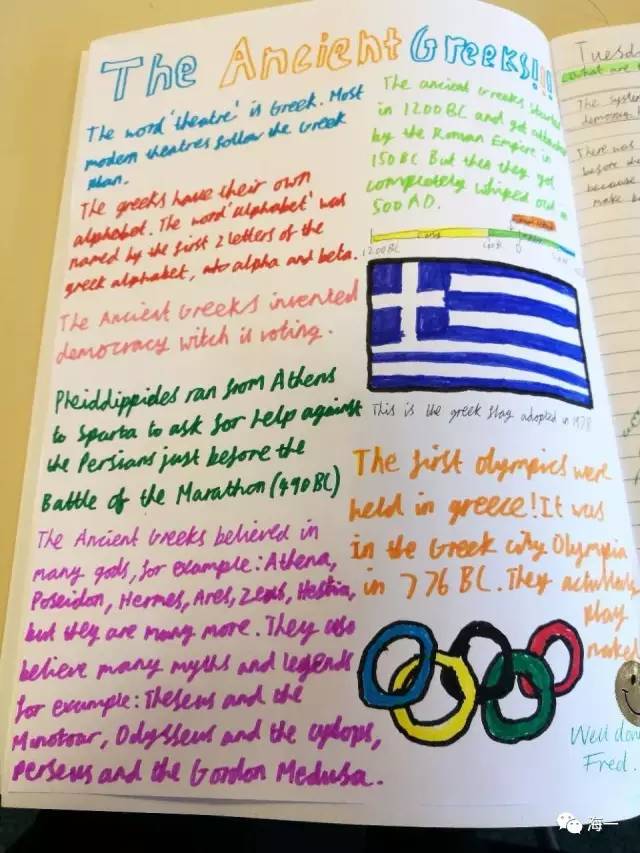 The Ancient Greeks!!!
The word 'theatre' is Greek. Most
modern theatres follow the Greek
plan.
The greeks have their own
alphabet. The word 'alphabet' was
named by the first 2 letters of the
greek alphabet, alpha and beta.
The Ancient Greeks invented
democracy witch is voting.
Pheiddippides ran from Athens
to Sparta to ask for help against
the Persians just before the
Battle of the Marathon (490 BC)
The Ancient Greeks believed in
many gods, for example: Athena,
Poseidon, Hermes, Ares, Zeus, Hestia,
but they are many more. They also
believe many myths and legends
for example: Theseus and the
Minotour, Odysseus and the cyclops,
Perseus and the Gordon Medusa.
The ancient Greeks started
in 1200 BC and got
by the Roman Empire in
150 BC. But then they got
completely whiped out
500 AD.
1200 BC
0
This is the greek flag adopted in 1978
The first olympics were
held in greece! It was
in the Greek city Olympia
in 776 BC. They actually
play
naked
Well done
Fred.
Tuesd
What are
The system
democracy
There was
before the
because
make
海一